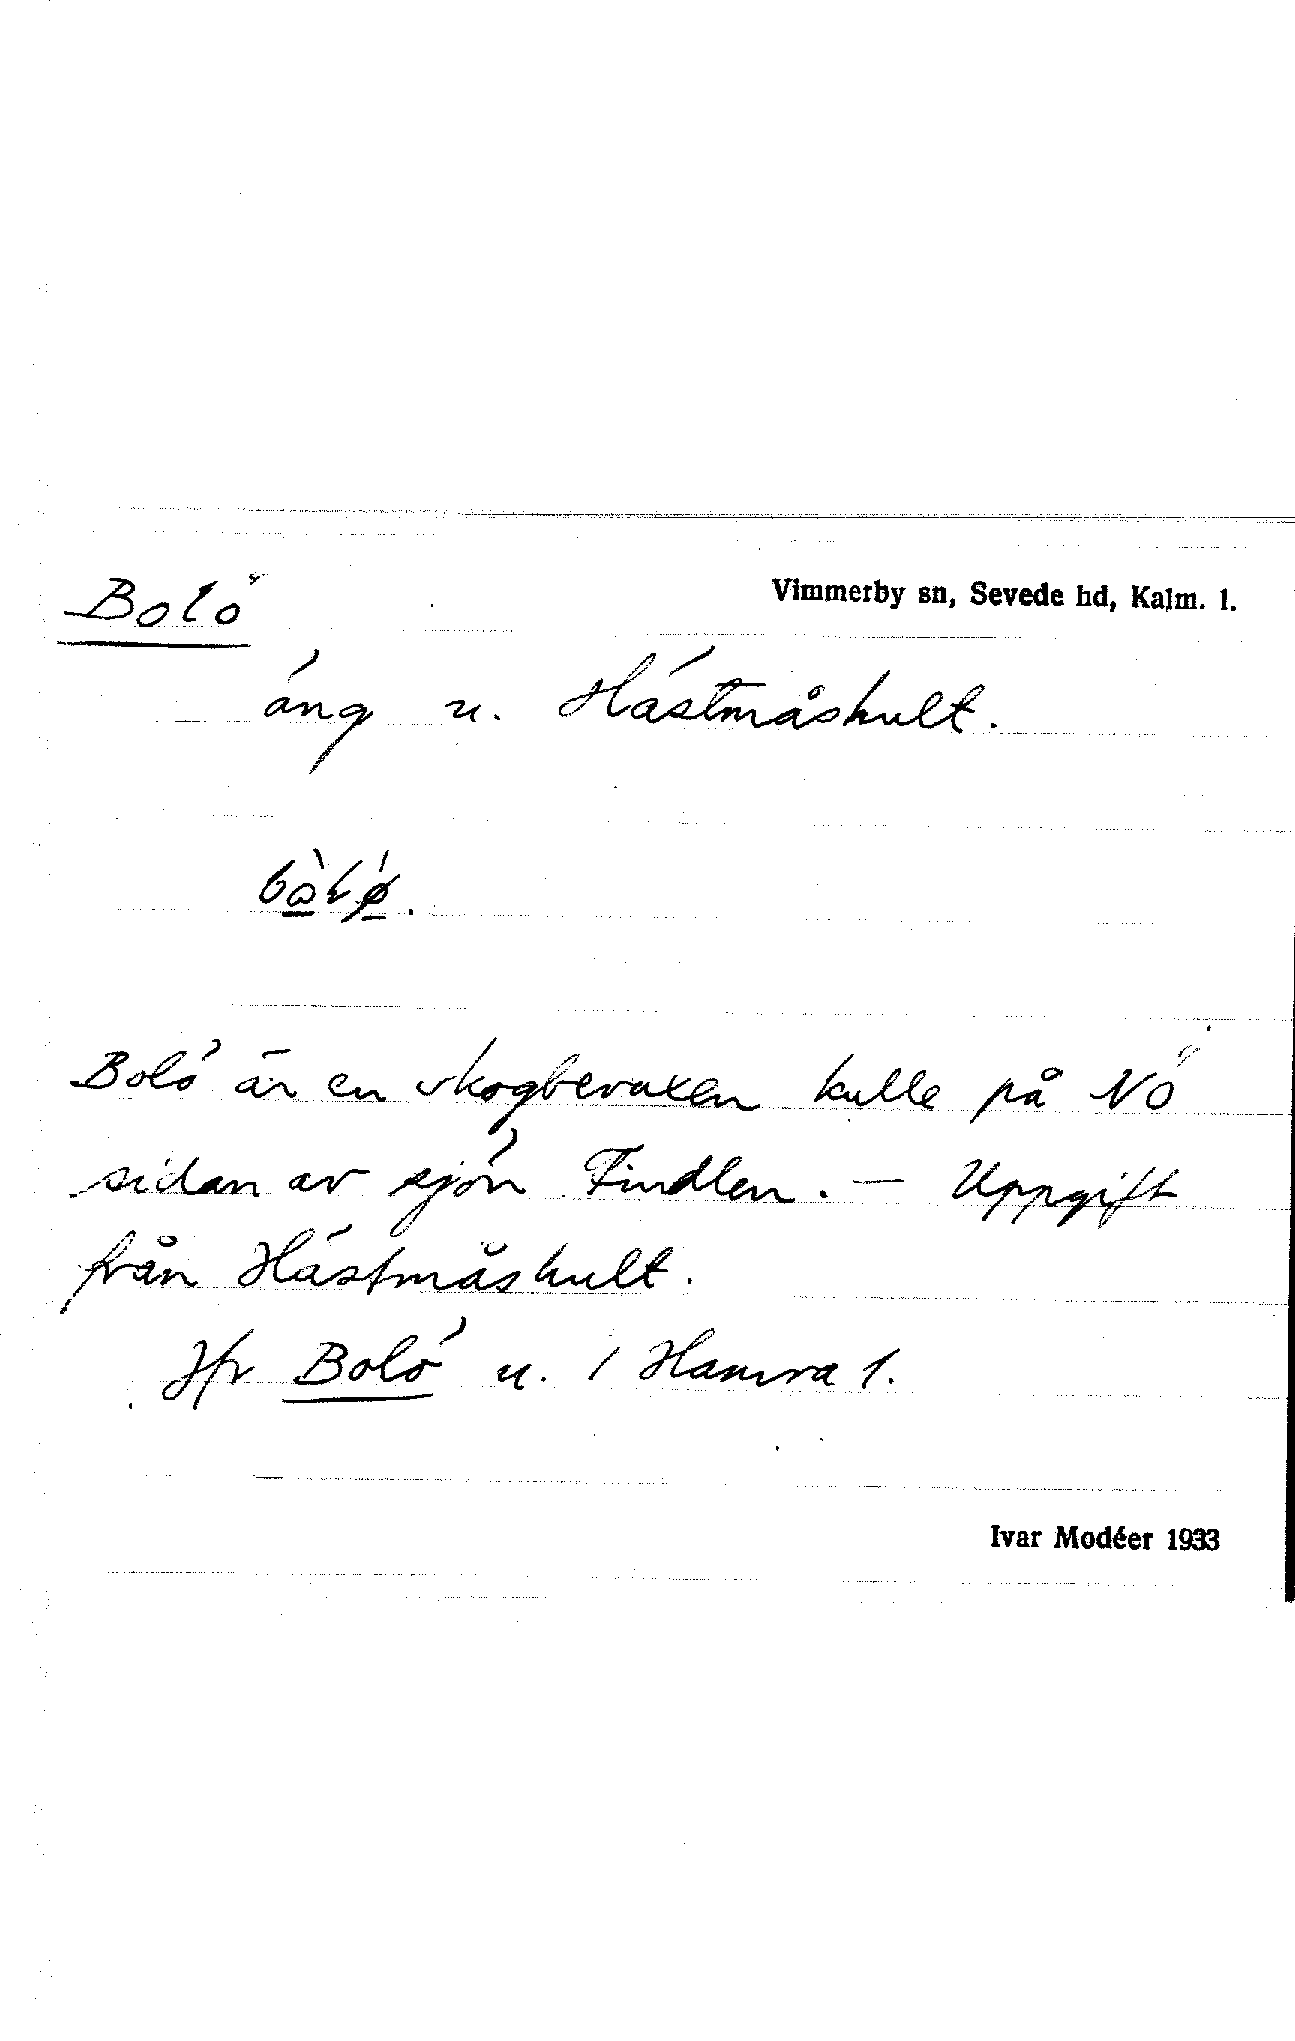 Bolö
Vimmerby sn, Sevede hd, Kalm. l.
äng u. Hästmåshult.
Bolö är en skogbevaxen kulle på NÖ
sidan av sjön Findlen. — Uppgift
från Hästmåshult.
Jfr Bolö u. 1 Hamra 1.
Ivar Modéer 1933